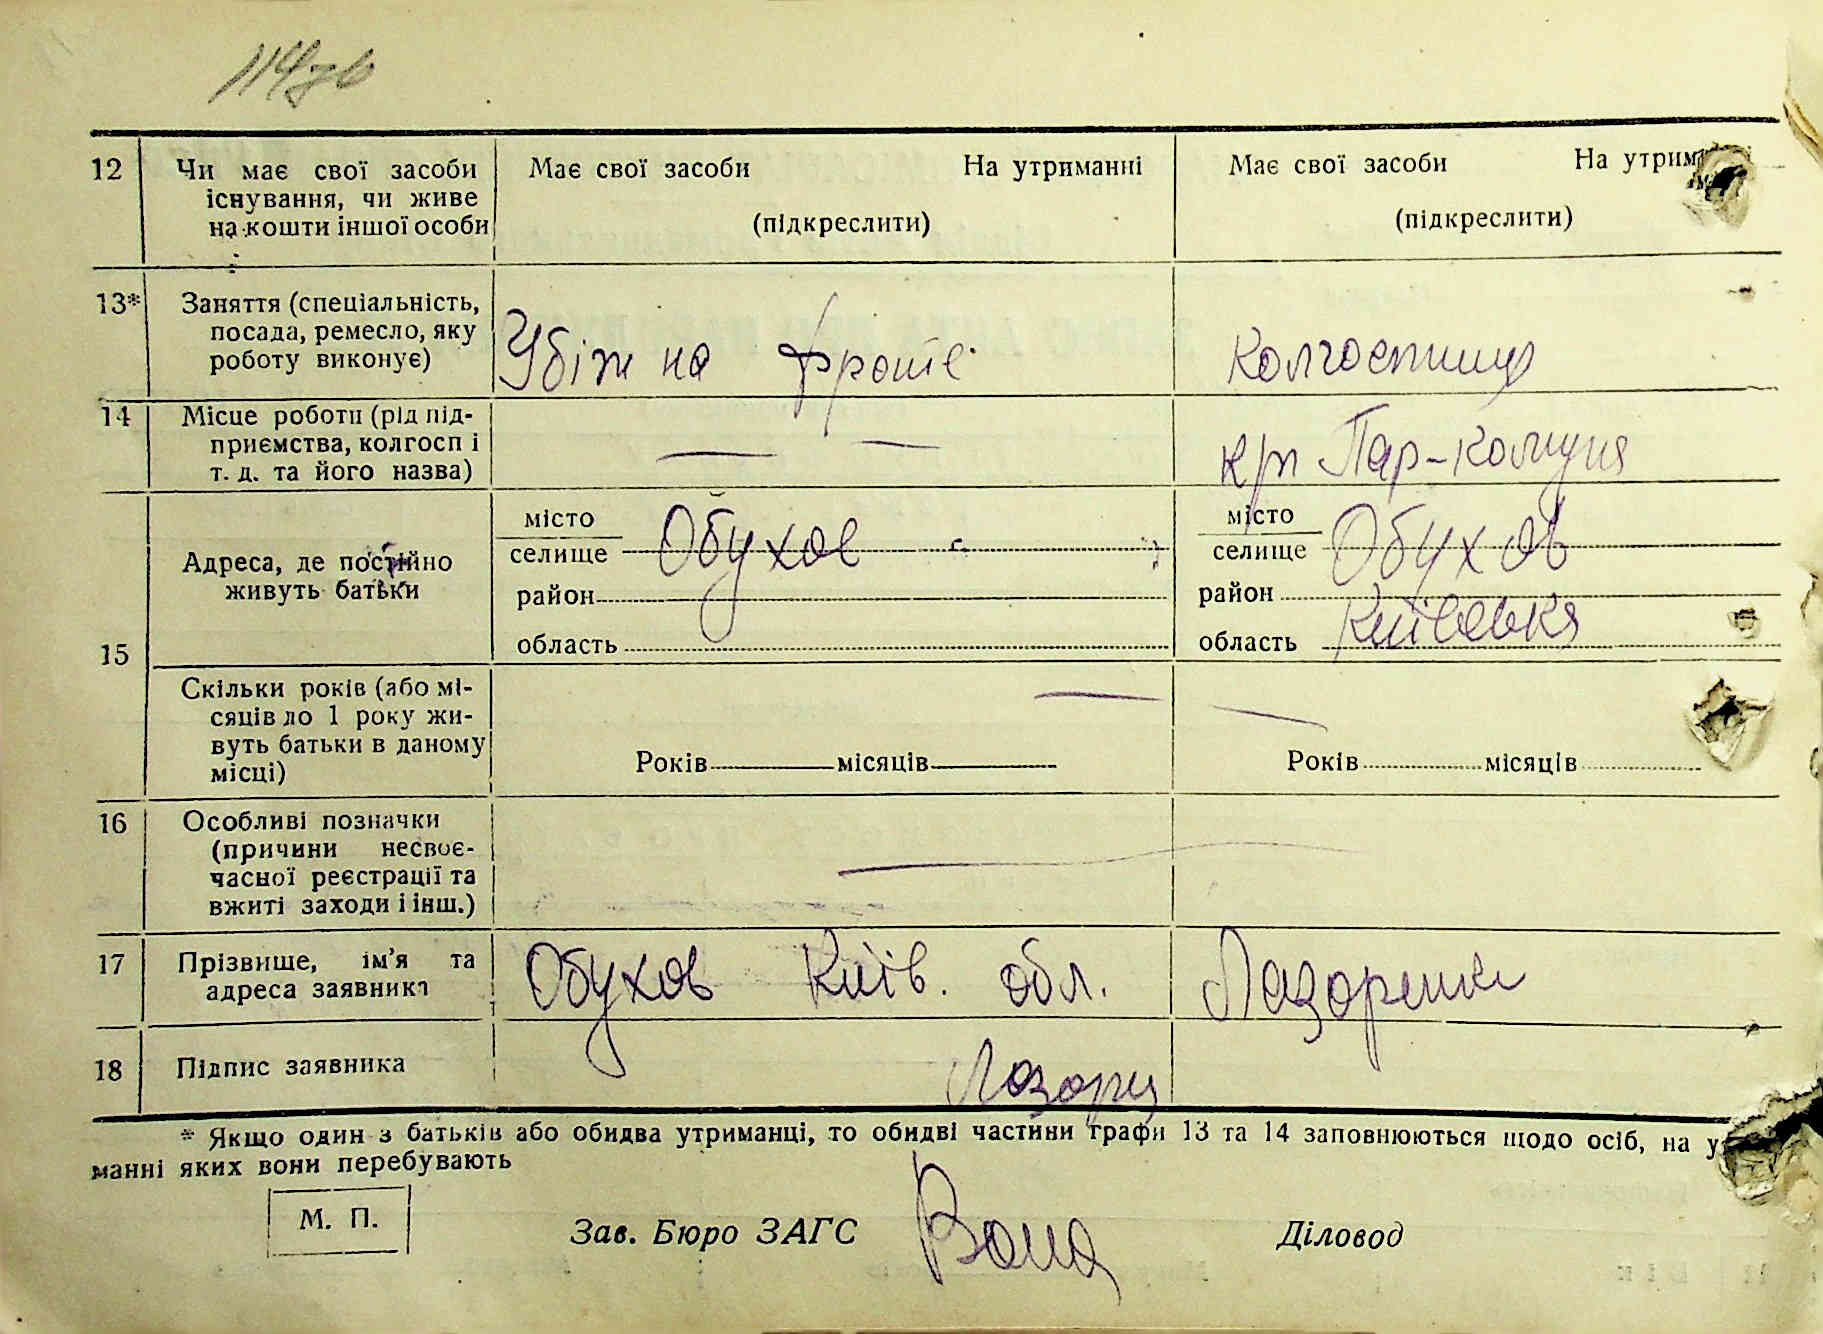 114зв
12 Чи має свої засоби існування, чи живе на кошти іншої особи
Має свої засоби На утриманні
(підкреслити)
Має свої засоби На утрим
(підкреслити)
13* Заняття (спеціальність, посада, ремесло, яку роботу виконує)
на фронте
Колгоспниця
14 Місце роботи (рід підприємства, колгосп і т. д. та його назва)
Пар-Комуна
15 Адреса, де постійно живуть батьки
місто
селище Обухов
район
область
місто
селище Обухов
район
область Київська
Скільки років (або місяців до 1 року живуть батьки в даному місці)
Років місяців
Років місяців
16 Особливі позначки (причини несвоєчасної реєстрації та вжиті заходи і інш.)
17 Прізвище, ім'я та адреса заявника
Обухов Київ. обл. Лазоренко
18 Підпис заявника
* Якщо один з батьків або обидва утриманці, то обидві частини графи 13 та 14 заповнюються щодо осіб, на у
манні яких вони перебувають
М. П.
Зав. Бюро ЗАГС
Діловод